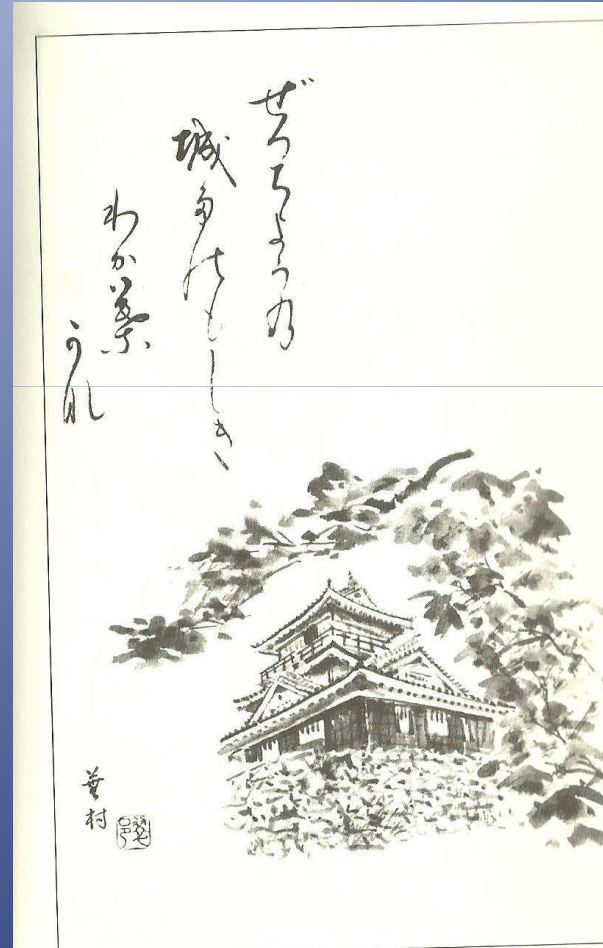 ぜつちようの
城たのもしき
わか葉
かな
蕪村